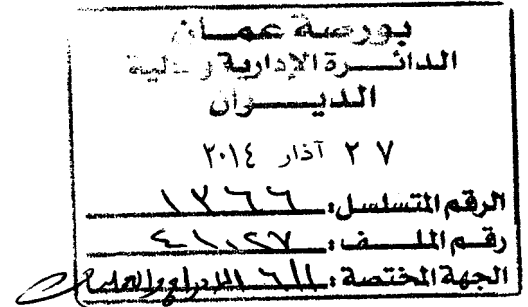 بورصة عمان
الدائرة الإدارية والمالية
الديوان
٢٧ آذار ٢٠١٤
الرقم المتسلسل: ١٢٦٦
رقم الملف: ٤١٠٢٧
الجهة المختصة: الادراج والعمليات